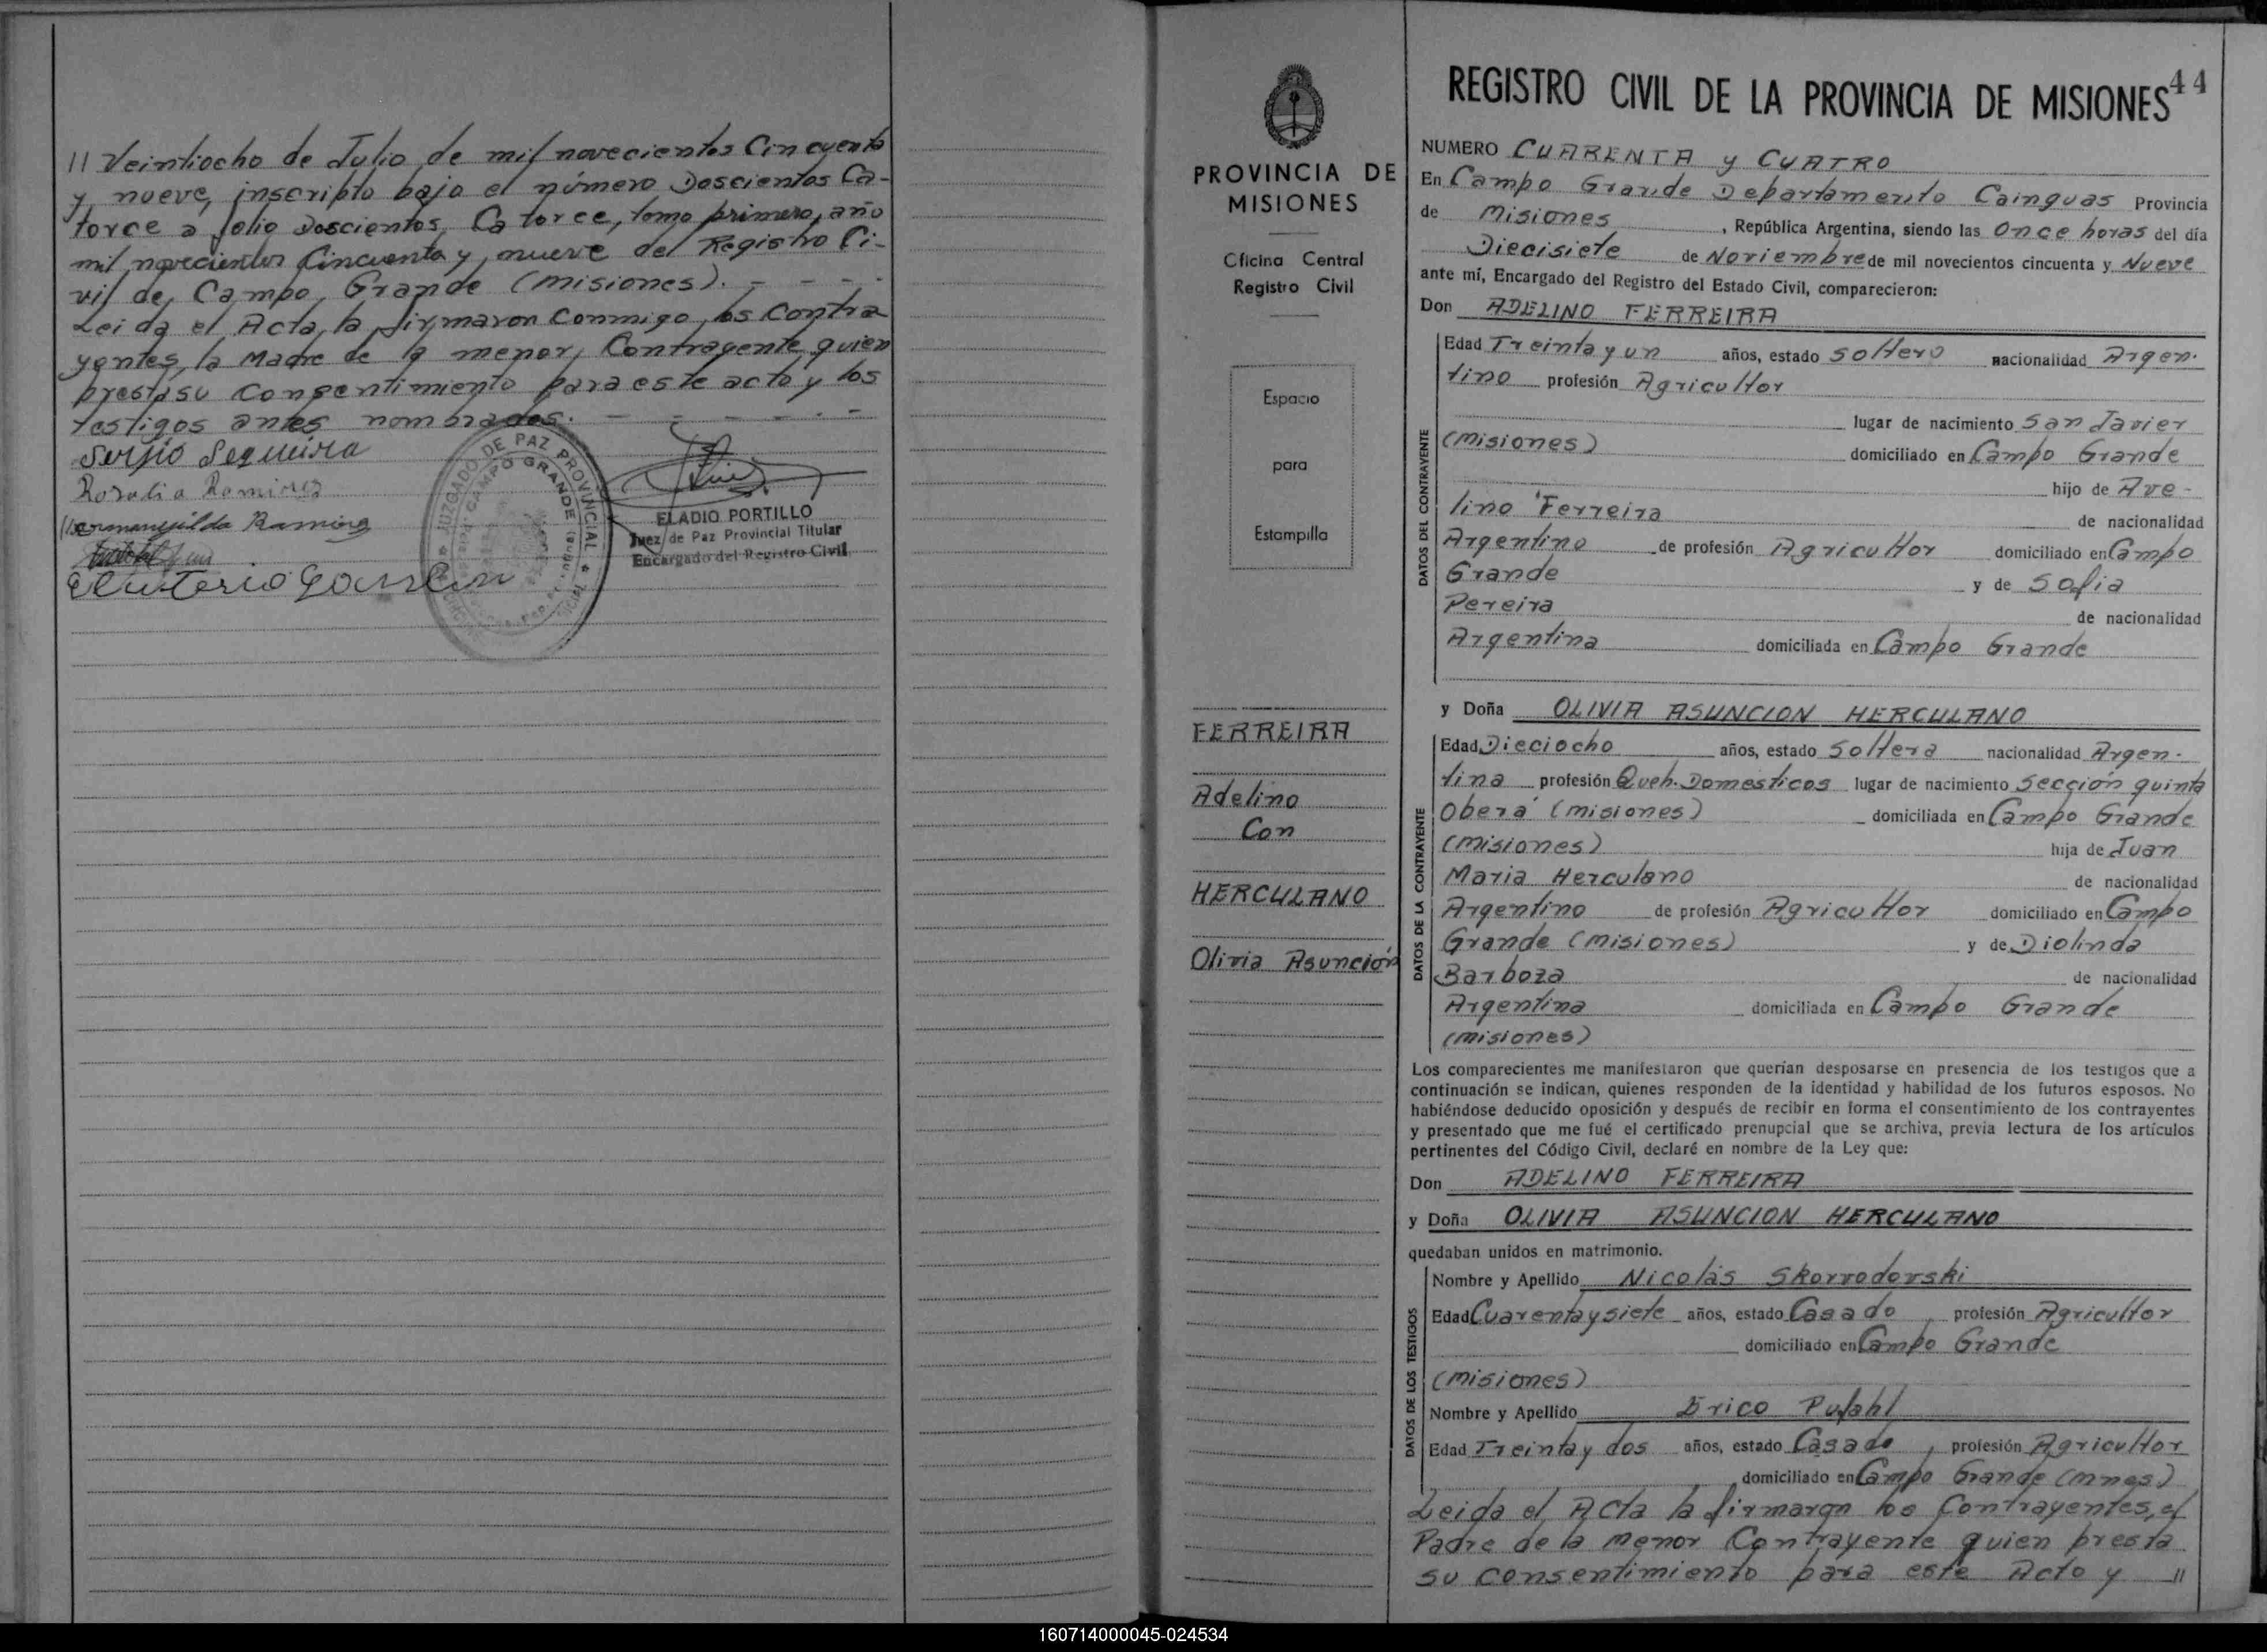 // Veintiocho de Julio de mil novecientos Cincuenta
y nueve, inscripto bajo el número Doscientos Ca-
torce a folio Doscientos Catorce, tomo primero, año
mil novecientos Cincuenta y nueve del Registro Ci-
vil de Campo Grande (Misiones). - - - -
Leida el Acta, la firmaron conmigo, los Contra
yentes, la Madre de la menor, Contrayente, quien
presta su consentimiento para este acto y los
testigos antes nombrados. - - - - -
Sergio Sequeira
Rosalia Ramirez
Hermenejilda Ramirez
Eleuterio
JUZGADO DE PAZ PROVINCIAL
CAMPO GRANDE
ELADIO PORTILLO
Juez de Paz Provincial Titular
Encargado del Registro Civil
PROVINCIA DE
MISIONES
Oficina Central
Registro Civil
Espacio
para
Estampilla
FERREIRA
Adelino
Con
HERCULANO
Olivia Asunción
44
REGISTRO CIVIL DE LA PROVINCIA DE MISIONES
NUMERO CUARENTA y CUATRO
En Campo Grande Departamento Cainguas Provincia
de Misiones, República Argentina, siendo las Once horas del día
Diecisiete de Noviembre de mil novecientos cincuenta y Nueve
ante mí, Encargado del Registro del Estado Civil, comparecieron:
Don ADELINO FERREIRA
DATOS DEL CONTRAYENTE
Edad Treinta y un años, estado soltero nacionalidad Argen-
tino profesión Agricultor
lugar de nacimiento San Javier
(Misiones) domiciliado en Campo Grande
hijo de Ave-
lino Ferreira de nacionalidad
Argentino de profesión Agricultor domiciliado en Campo
Grande y de Sofia
Pereira de nacionalidad
Argentina domiciliada en Campo Grande
y Doña OLIVIA ASUNCION HERCULANO
DATOS DE LA CONTRAYENTE
Edad Dieciocho años, estado Soltera nacionalidad Argen-
tina profesión Queh. Domesticos lugar de nacimiento Sección quinta
Oberá (Misiones) domiciliada en Campo Grande
(Misiones) hija de Juan
Maria Herculano de nacionalidad
Argentino de profesión Agricultor domiciliado en Campo
Grande (Misiones) y de Diolinda
Barboza de nacionalidad
Argentina domiciliada en Campo Grande
(Misiones)
Los comparecientes me manifestaron que querían desposarse en presencia de los testigos que a
continuación se indican, quienes responden de la identidad y habilidad de los futuros esposos. No
habiéndose deducido oposición y después de recibir en forma el consentimiento de los contrayentes
y presentado que me fué el certificado prenupcial que se archiva, previa lectura de los artículos
pertinentes del Código Civil, declaré en nombre de la Ley que:
Don ADELINO FERREIRA
y Doña OLIVIA ASUNCION HERCULANO
quedaban unidos en matrimonio.
DATOS DE LOS TESTIGOS
Nombre y Apellido Nicolás Skorvodovski
Edad Cuarenta y siete años, estado Casado, profesión Agricultor
domiciliado en Campo Grande
(Misiones)
Nombre y Apellido Erico Pufahl
Edad Treinta y dos años, estado Casado, profesión Agricultor
domiciliado en Campo Grande (Mnes)
Leida el Acta la firmaron los Contrayentes, el
Padre de la Menor Contrayente quien presta
su consentimiento para este Acto y //
160714000045-024534